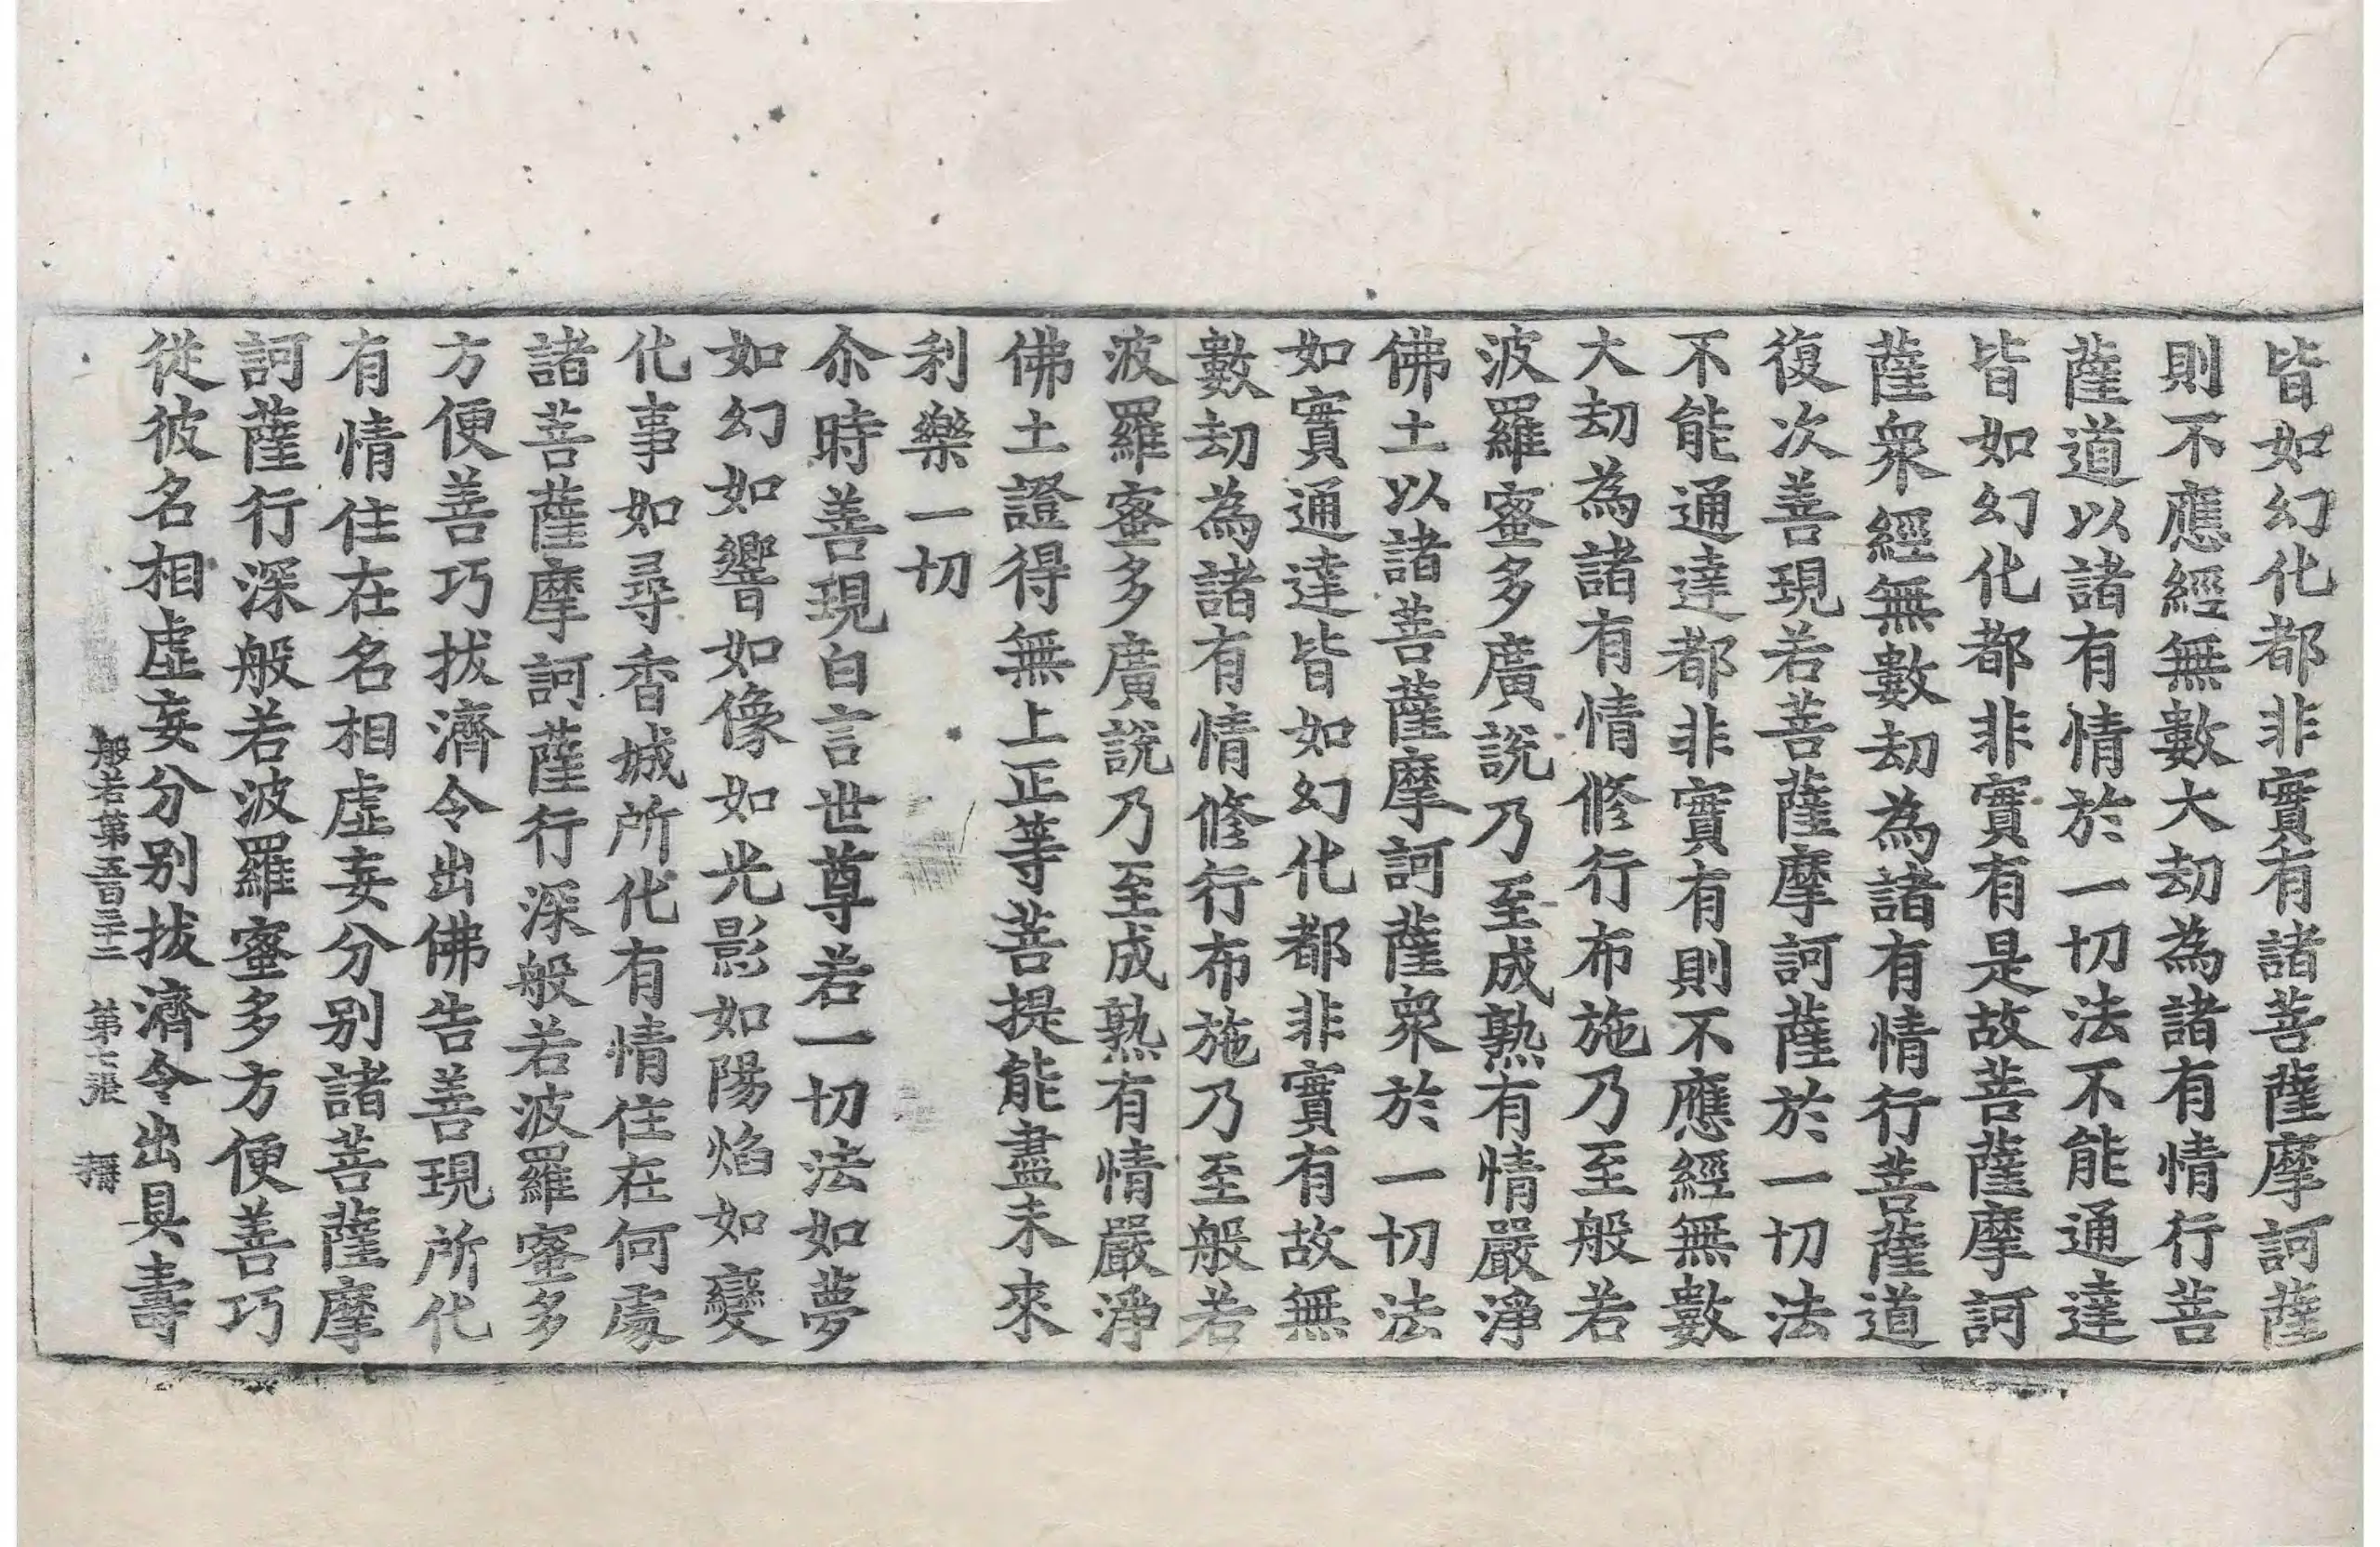 皆如幻化都非實有諸菩薩摩訶薩
則不應經無數大劫為諸有情行菩
薩道以諸有情於一切法不能通達
皆如幻化都非實有是故菩薩摩訶
薩衆經無數劫為諸有情行菩薩道
復次善現若菩薩摩訶薩於一切法
不能通達都非實有則不應經無數
大劫為諸有情修行布施乃至般若
波羅蜜多廣說乃至成熟有情嚴淨
佛土以諸菩薩摩訶薩衆於一切法
如實通達皆如幻化都非實有故無
數劫為諸有情修行布施乃至般若
波羅蜜多廣說乃至成熟有情嚴淨
佛土證得無上正等菩提能盡未來
利樂一切
尒時善現白言世尊若一切法如夢
如幻如響如像如光影如陽焰如變
化事如尋香城所化有情住在何處
諸菩薩摩訶薩行深般若波羅蜜多
方便善巧拔濟令出佛告善現所化
有情住在名相虛妄分別諸菩薩摩
訶薩行深般若波羅蜜多方便善巧
從彼名相虛妄分別拔濟令出具壽
般若第五百三十二 第七張